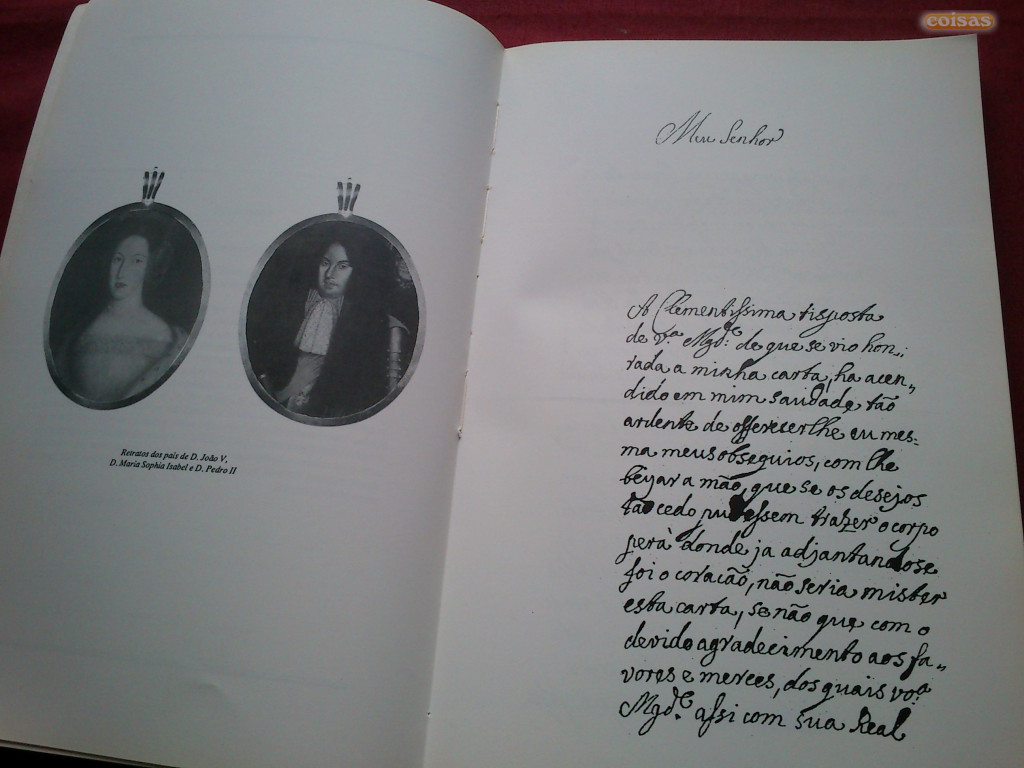 coisas
Retratos dos pais de D. João V,
D. Maria Sophia Isabel e D. Pedro II
Meu Senhor
A Clementissima risposta
de V.ª Mgd.e de que se vio hon,,
rada a minha carta, ha acen,,
dido em mim saudade tão
ardente de offereserlhe eu mes-
ma meus obsequios, com lhe
beyar a mão, que se os desejos
tão cedo pudessem trazer o corpo
perà donde ja adjantandose
foi o coracão, não seria mister
esta carta, se não que com o
devido agradecimento aos fa,,
vores e merces, dos quais vo.ª
Mgd.e assi com sua Real